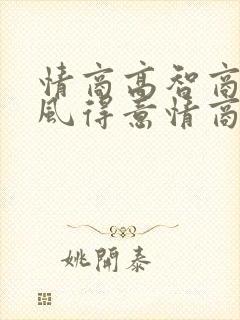 情商高智商
風得意情商
姚開泰